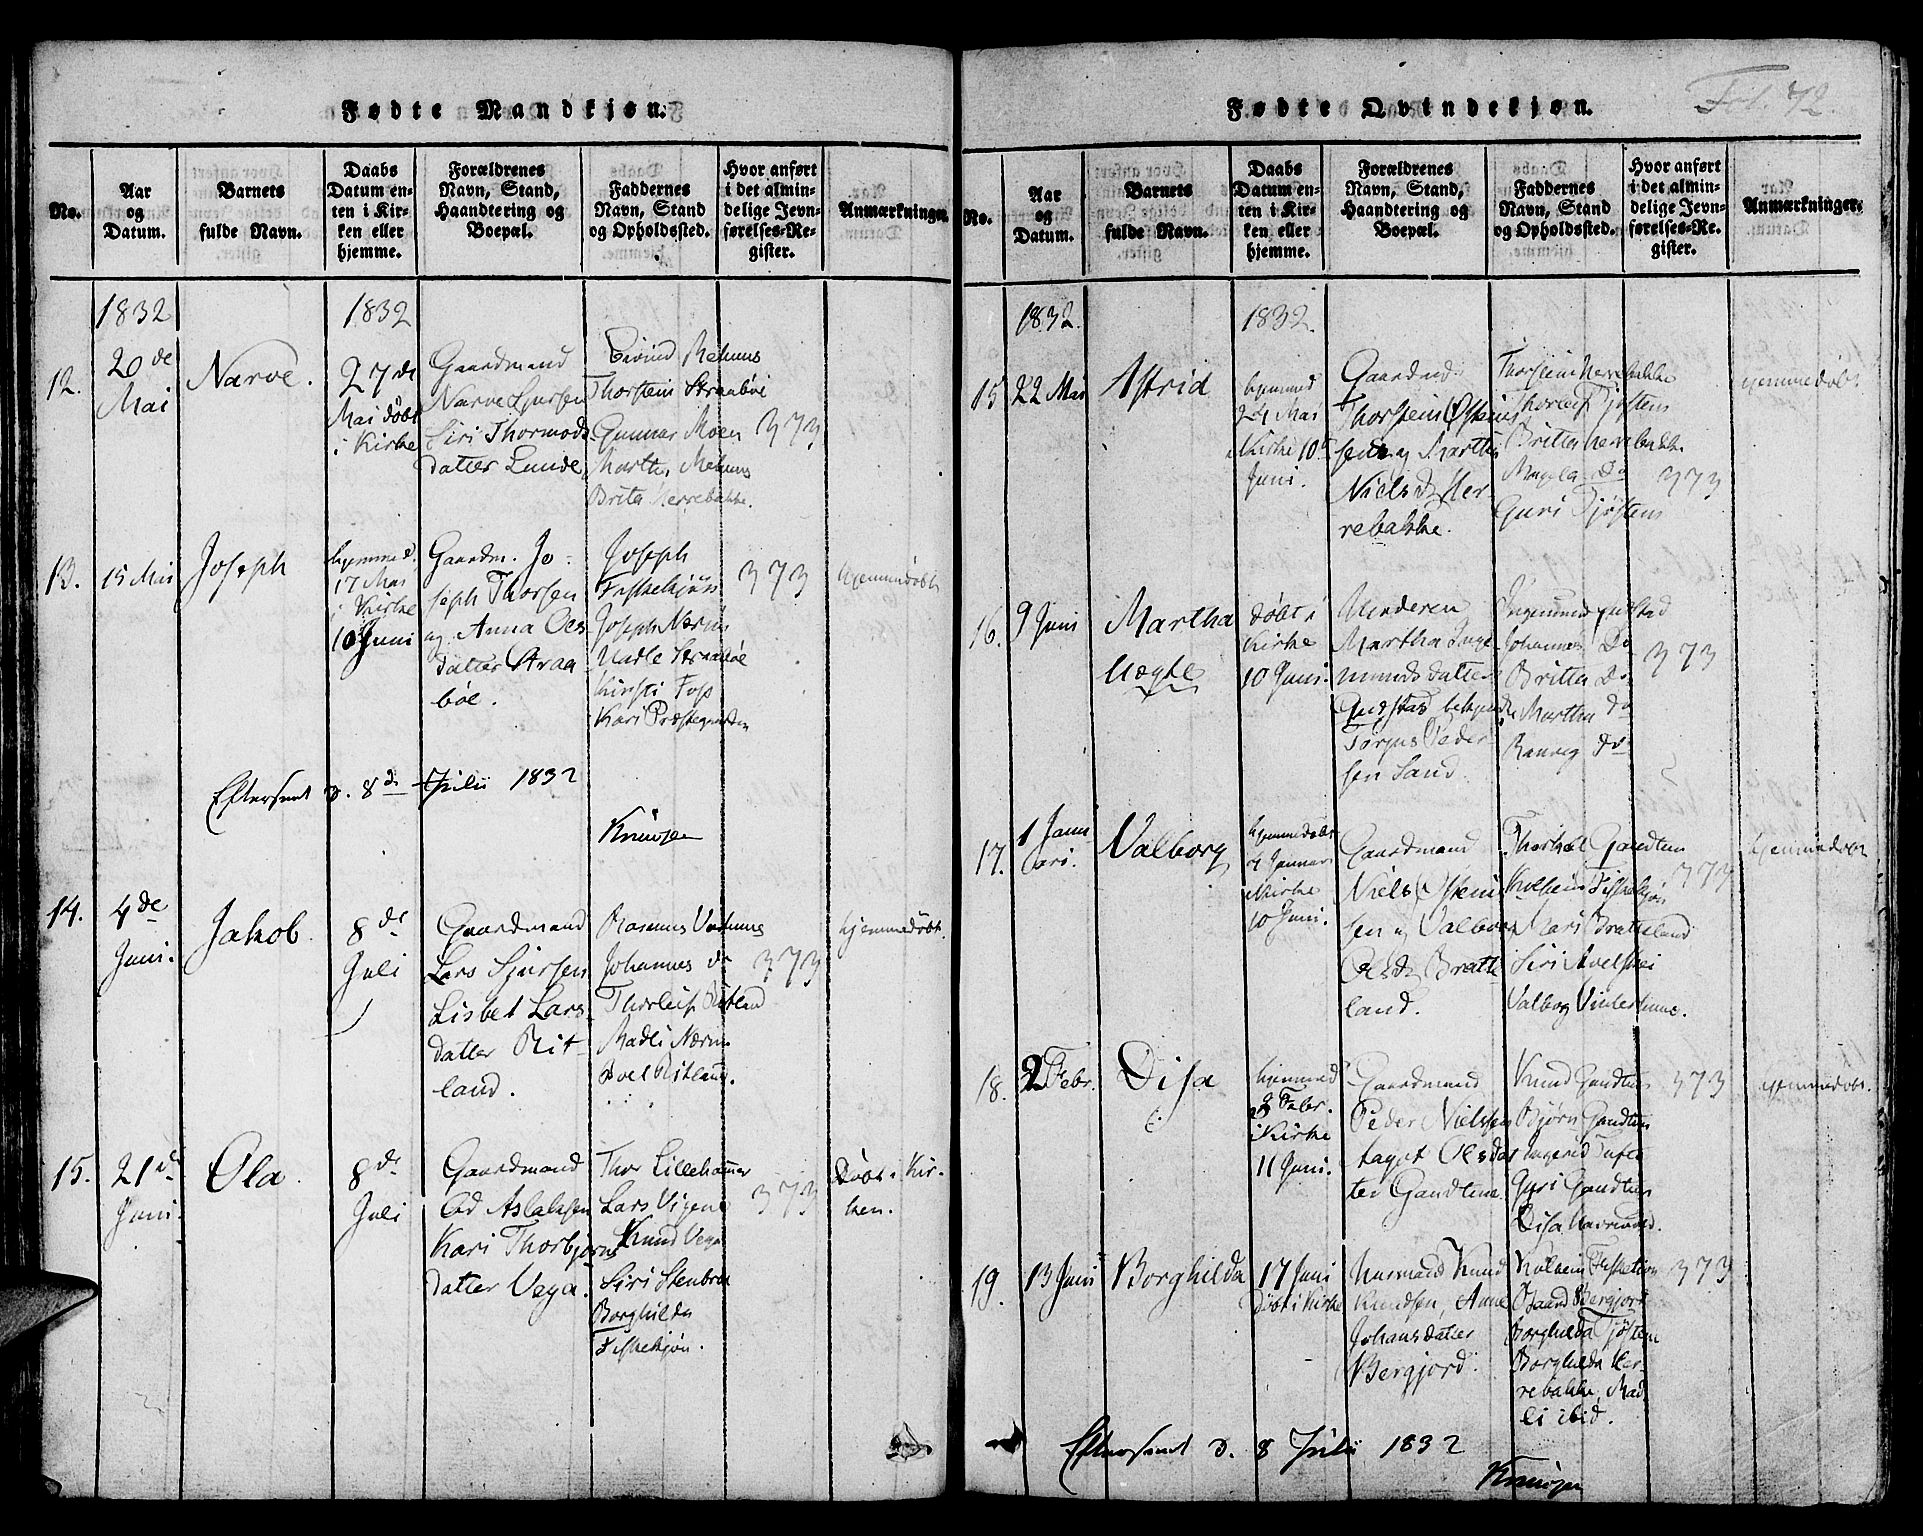 Fødte Mandkjøn.
No.
Aar
og
Datum.
Barnets
fulde Navn.
Daabs
Datum en-
ten i Kir-
ken eller
hjemme.
Forældrenes
Navn, Stand,
Haandtering og
Boepæl.
Faddernes
Navn, Stand
og Opholdssted.
Hvor anført
i det almin-
delige Jevn-
førelses-Re-
gister.
Anmærkninger.
1832
1832
12.
20de
Mai
Narve.
27de
Mai döbt
i Kirke
Gaardmand
Narve Sjursen
Siri Thormods
datter Lunde
Eivind Mehuus
Thorstein Straabøe
Gunnar Moen
Martha Mehuus
Brita Herrebakke.
373
13.
15 Mai
Joseph
hjemmed.
17 Mai
i Kirke
10 Juni
Gaardm. Jo-
seph Thorsen
og Anna Ols
datter Straa
böe.
Joseph
Fiskekjön
Joseph Nærim
Straabøe
Kirsti Foss
Kari Præstegaarden
373
hjemmedöbt
Efterseet d. 8de Julii 1832
Knudsen
14.
4de
Juni.
Jakob.
8de
Juli
Gaardmand
Lars Sjursen
Lisbet Lars
datter Rit-
land.
Rasmus
Johannes do
Thorleif Ritland
Madli Nærim
Ritland.
373
hjemmedöbt.
15.
21de
Juni.
Ola.
8de
Juli
Gaardmand
Od Aslaksen
Kari Thorbjørns
datter Vega.
Thor Lillehammer
Lars Vigene
Knud Vega
Siri Stenbroe
Borghilda
Fiskekjön.
373
Döbt i Kir-
ken.
Fødte Qvindekjøn.
Fol. 72.
No.
Aar
og
Datum.
Barnets
fulde Navn.
Daabs
Datum en-
ten i Kir-
ken eller
hjemme.
Forældrenes
Navn, Stand,
Haandtering og
Boepæl.
Faddernes
Navn, Stand
og Opholdssted.
Hvor anført
i det almin-
delige Jevn-
førelses-Re-
gister.
Anmærkninger.
1832.
1832.
15
22 Mai
Astrid
hjemmed
24 Mai
i Kirke 10de
Juni.
Gaardmd.
Thorstein Østens
sen og Martha
Nielsd. Her-
rebakke.
Thorstein Herrebakke
Thorleif Tjöstem
Britta Herrebakke
Magela Do
Guri Tjöstem
373
hjemmedöbt
16.
9 Juni
Martha
Uægte
döbt i
Kirke
10 Juni.
Martha Inge
munds datter
Torjus Peder
sen Sand.
Ingemund
Johannes Do
Britta Do
Martha Do
Ranveg Do
373
17.
1 Janu
ari.
Valborg
hjemmedöbt
Januar
i Kirke
10 Juni.
Gaardmand
Niels Østens
sen og Valborg
Olsd. Bratte
land.
Thorkel Gandtem
Kolbein Fiskekjön
Mari Bratteland
Siri
Valborg
373
hjemmedöbt
18.
2 Febr.
Disa
hjemmed
Febr.
i Kirke
11 Juni.
Gaardmand
Peder Nielsen
Olsdat
ter Gandtem
Knud Gandtem
Bjørn Gandtem
Guri Gandtem
Disa
373
hjemmedöbt.
19.
13 Juni
Borghilda
17 Juni
Döbt i Kirke
Huusmand Knud
Knudsen, Anne
Johansdatter
Bergjord.
Kolbein Fiskekjön
Bergjord
Borghilda Tjöstem
Borghilda Her-
rebakke, Mad
li ibid.
373
Efterseet d. 8 Julii 1832
Knudsen